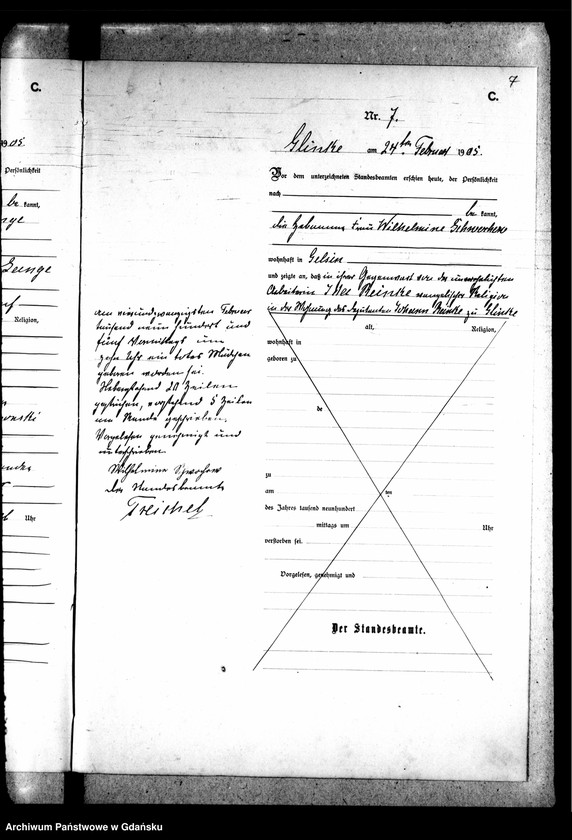 C.
1905.
Persönlichkeit
be kannt,
Religion,
Uhr
7
C.
Nr. 7.
Glinke am 24ten Februar 1905.
Vor dem unterzeichneten Standesbeamten erschien heute, der Persönlichkeit
nach
be kannt,
die Hebamme Frau Wilhelmine
wohnhaft in Gelsin
und zeigte an, daß in ihrer Gegenwart von der unverehelichten
Arbeiterin Reinke evangelischer Religion
in der Wohnung des Johann Reinke zu Glinke
alt, Religion,
wohnhaft in
geboren zu
de
zu
am ten
des Jahres tausend neunhundert
mittags um Uhr
verstorben sei.
Vorgelesen, genehmigt und
Der Standesbeamte.
am einundzwanzigsten Februar
tausend neun hundert und
fünf Vormittags um
zehn Uhr ein totes Mädchen
geboren worden sei.
20 Zeilen
gestrichen, 5 Zeilen
am Rande geschrieben.
Vorgelesen genehmigt und
unterschrieben.
Wilhelmine
der Standesbeamte
Treichel
Archiwum Państwowe w Gdańsku